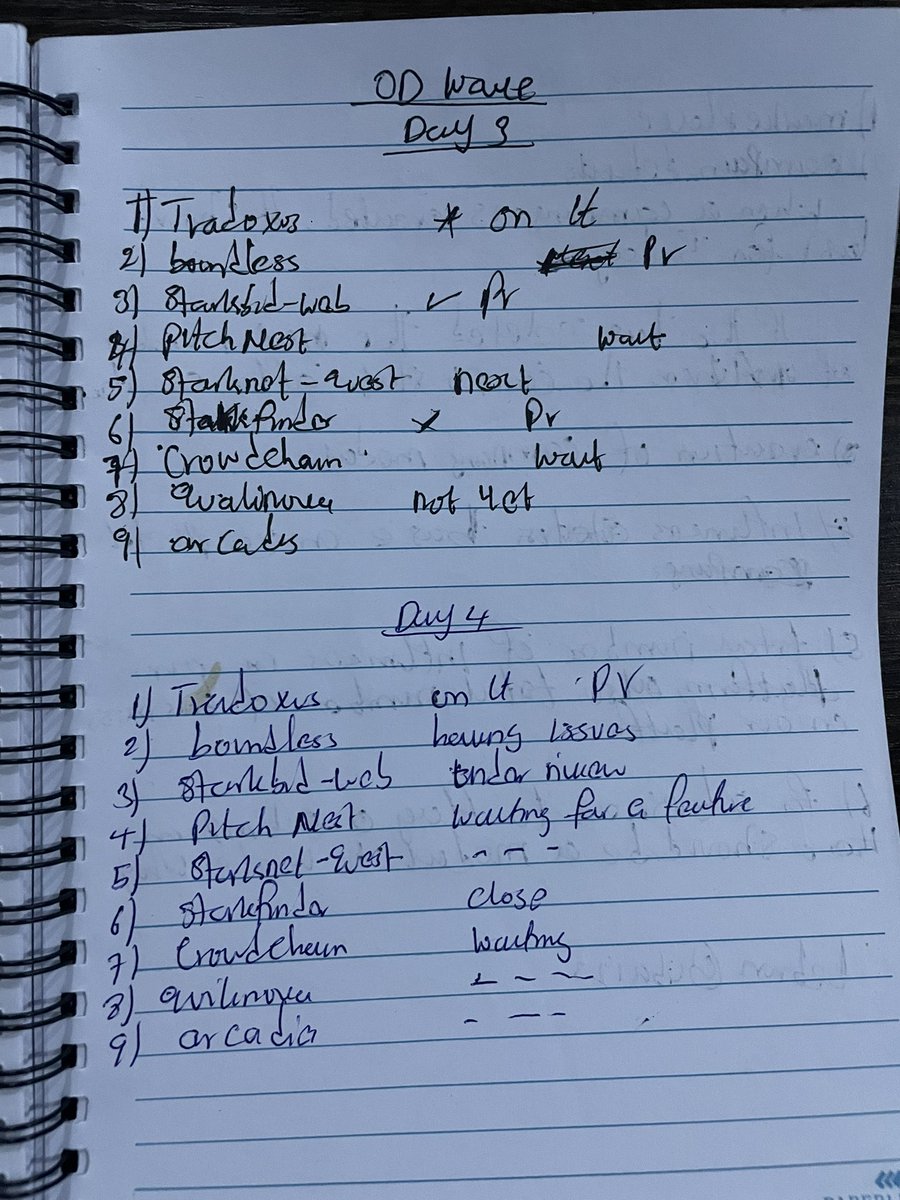 OD Wave
Day 3
1) Tradoxus * on it
2) boundless Pr
3) Starkbid-web ✓ Pr
4) Pitch Nest wait
5) Starknet-quest next
6) Starkfinder Pr
7) Crowdchain wait
8) not yet
9) arcades
Day 4
1) Tradoxus on it PR
2) boundless having issues
3) Starkbid-web under
4) Pitch Nest waiting for a feature
5) Starknet-quest - - -
6) Starkfinder close
7) Crowdchain waiting
8) - - -
9) arcadia - - -